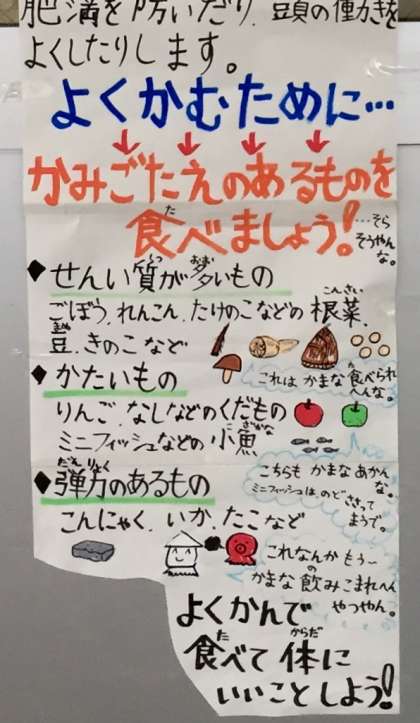 肥満を防いだり、頭の働きを
よくしたりします。
よくかむために…
↓ ↓ ↓ ↓
かみごたえのあるものを
食べましょう!
た
…そら
そうやん
な。
◆せんい質が多いもの
しつ おお
ごぼう、れんこん、たけのこなどの根菜、
こんさい
豆、きのこなど
まめ
これは かまな 食べられ
へんな。
◆かたいもの
りんご、なしなどのくだもの
ミニフィッシュなどの小魚
こざかな
こちらも かまな あかん
な。
ミニフィッシュは、のど ささって
まうで。
◆弾力のあるもの
だんりょく
こんにゃく、いか、たこなど
これなんか もう〜
かまな 飲みこまれへん
の
やつやん。
よくかんで
食べて 体に
た からだ
いいことしよう!